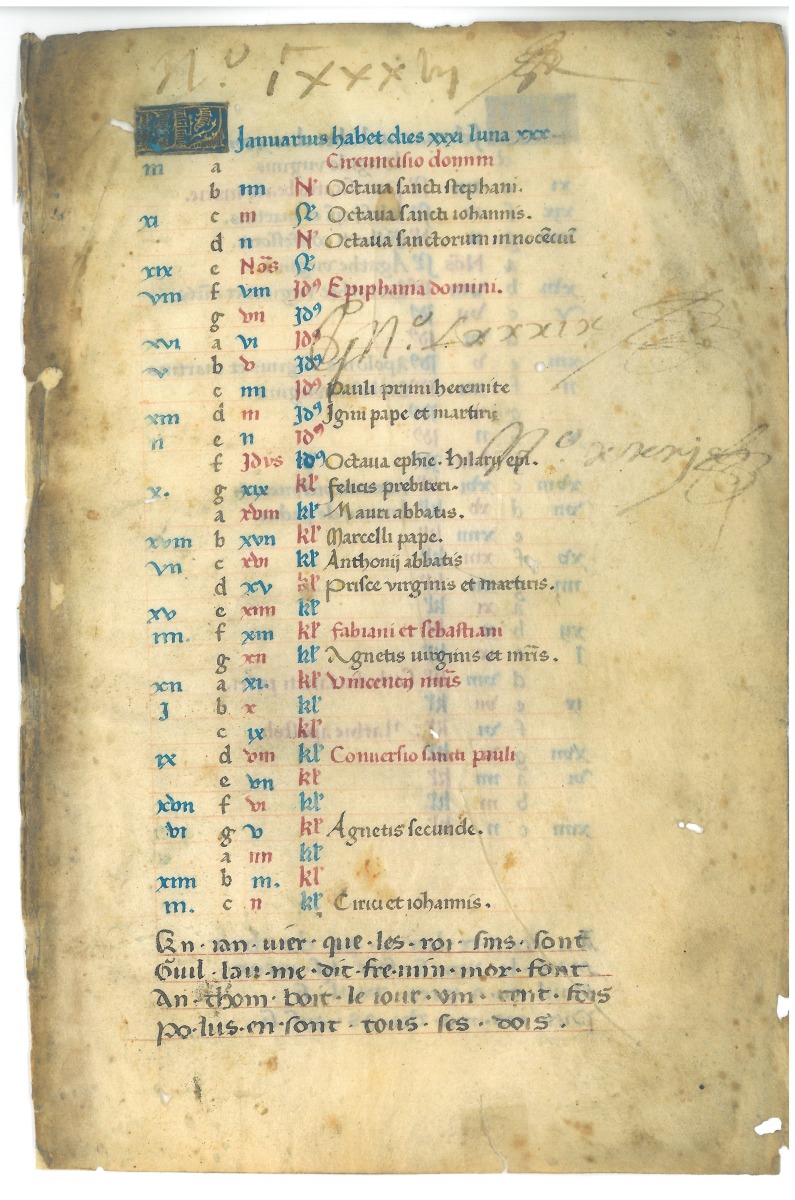 N.º lxxxvj
Januarius habet dies xxxi luna xxx
m a Circuncisio domini
b iiii N' Octaua sancti stephani.
xi c iii N' Octaua sancti iohannis.
d ii N' Octaua sanctorum innocẽciũ
xix e Nõs N'
viii f viii Jdꝰ Epiphania domini.
g vii Jdꝰ
xvi a vi Jdꝰ
v b v Jdꝰ
c iiii Jdꝰ Pauli primi heremite
xiii d iii Jdꝰ Igini pape et martiris
ii e ii Jdꝰ
f Jdvs Jdꝰ Octaua ephie. hilarij epi.
x. g xix kl' felicis prebiteri.
a xviii kl' Mauri abbatis.
xviii b xvii kl' Marcelli pape.
vii c xvi kl' Anthonij abbatis
d xv kl' Prisce virginis et martiris.
xv e xiiii kl'
iiii. f xiii kl' fabiani et sebastiani
g xii kl' Agnetis uirginis et mr̃is.
xii a xi. kl' Vincencij mr̃is
J b x kl'
c ix kl'
ix d viii kl' Conuersio sancti pauli
e vii kl'
xvii f vi kl'
vi g v kl' Agnetis secunde.
a iiii kl'
xiiii b iii. kl'
iii. c ii kl' Cirici et iohannis.
En · ian · uier · que · les · roi · sins · sont
Guil · lau · me · dit · fre · min · mor · font
An · thom · boit · le iour · vin · cent · fois
Po · lus · en · sont · tous · ses · dois ·